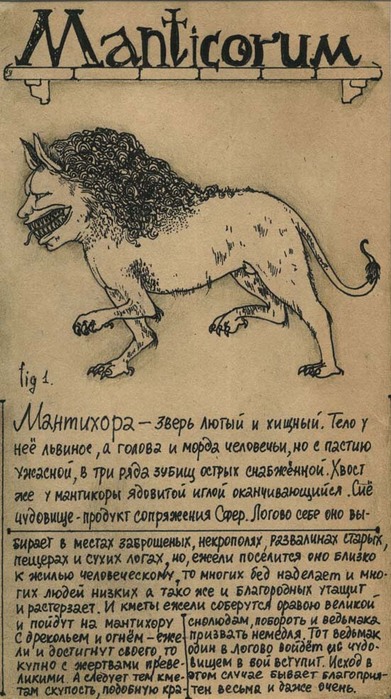 Manticorum
fig 1.
Мантихора – зверь лютый и хищный. Тело у
неё львиное, а голова и морда человечьи, но с пастию
ужасной, в три ряда зубищ острых снабжённой. Хвост
же у мантикоры ядовитой иглой оканчивающийся. Сиё
чудовище - продукт сопряжения Сфер. Логово себе оно вы-
бирает в местах заброшеных, некрополях, развалинах старых,
пещерах и сухих логах, но, ежели поселится оно близко
к жилью человеческому, то многих бед наделает и мно-
гих людей низких а тако же и благородных утащит
и растерзает. И кметы ежели соберутся оравою великой
и пойдут на мантихору
с дрекольем и огнём – еже-
ли и достигнут своего, то
купно с жертвами преве-
ликими. А следует тем кме-
там скупость, подобную кра-
снолюдам, побороть и ведьмака
призвать немедля. Тот ведьмак
один в логово войдёт и с чудо-
вищем в бой вступит. Исход в
этом случае бывает благоприя-
тен весьма и даже очень.